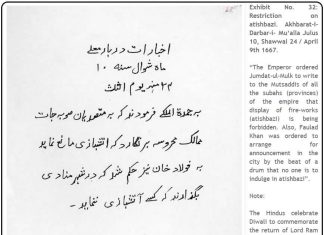 اخبارات دربار معلی
ماه شوال سنه ۱۰
۲۴ شهر یوم الثلث
به جمدة الملکی فرمودند که به متصدیان صوبه جات
ممالک محروسه بر نگارد که آتشبازی مانع نمایو
به فولاد خان نیز حکم شد که در شهر منادی
بگذارند که کسے آتشبازی نماید -
Exhibit No. 32:
Restriction on
atishbazi. Akhbarat-i-
Darbar-i- Mu'alla Julus
10, Shawwal 24 / April
9th 1667.
"The Emperor ordered
Jumdat-ul-Mulk to write
to the Mutsaddis of all
the subahs (provinces)
of the empire that
display of fire-works
(atishbazi) is being
forbidden. Also, Faulad
Khan was ordered to
arrange for
announcement in the
city by the beat of a
drum that no one is to
indulge in atishbazi".
Note:
The Hindus celebrate
Diwali to commemorate
the return of Lord Ram